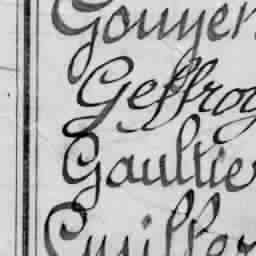 Gouyer
Geffroy
Gaultie
Cuiller